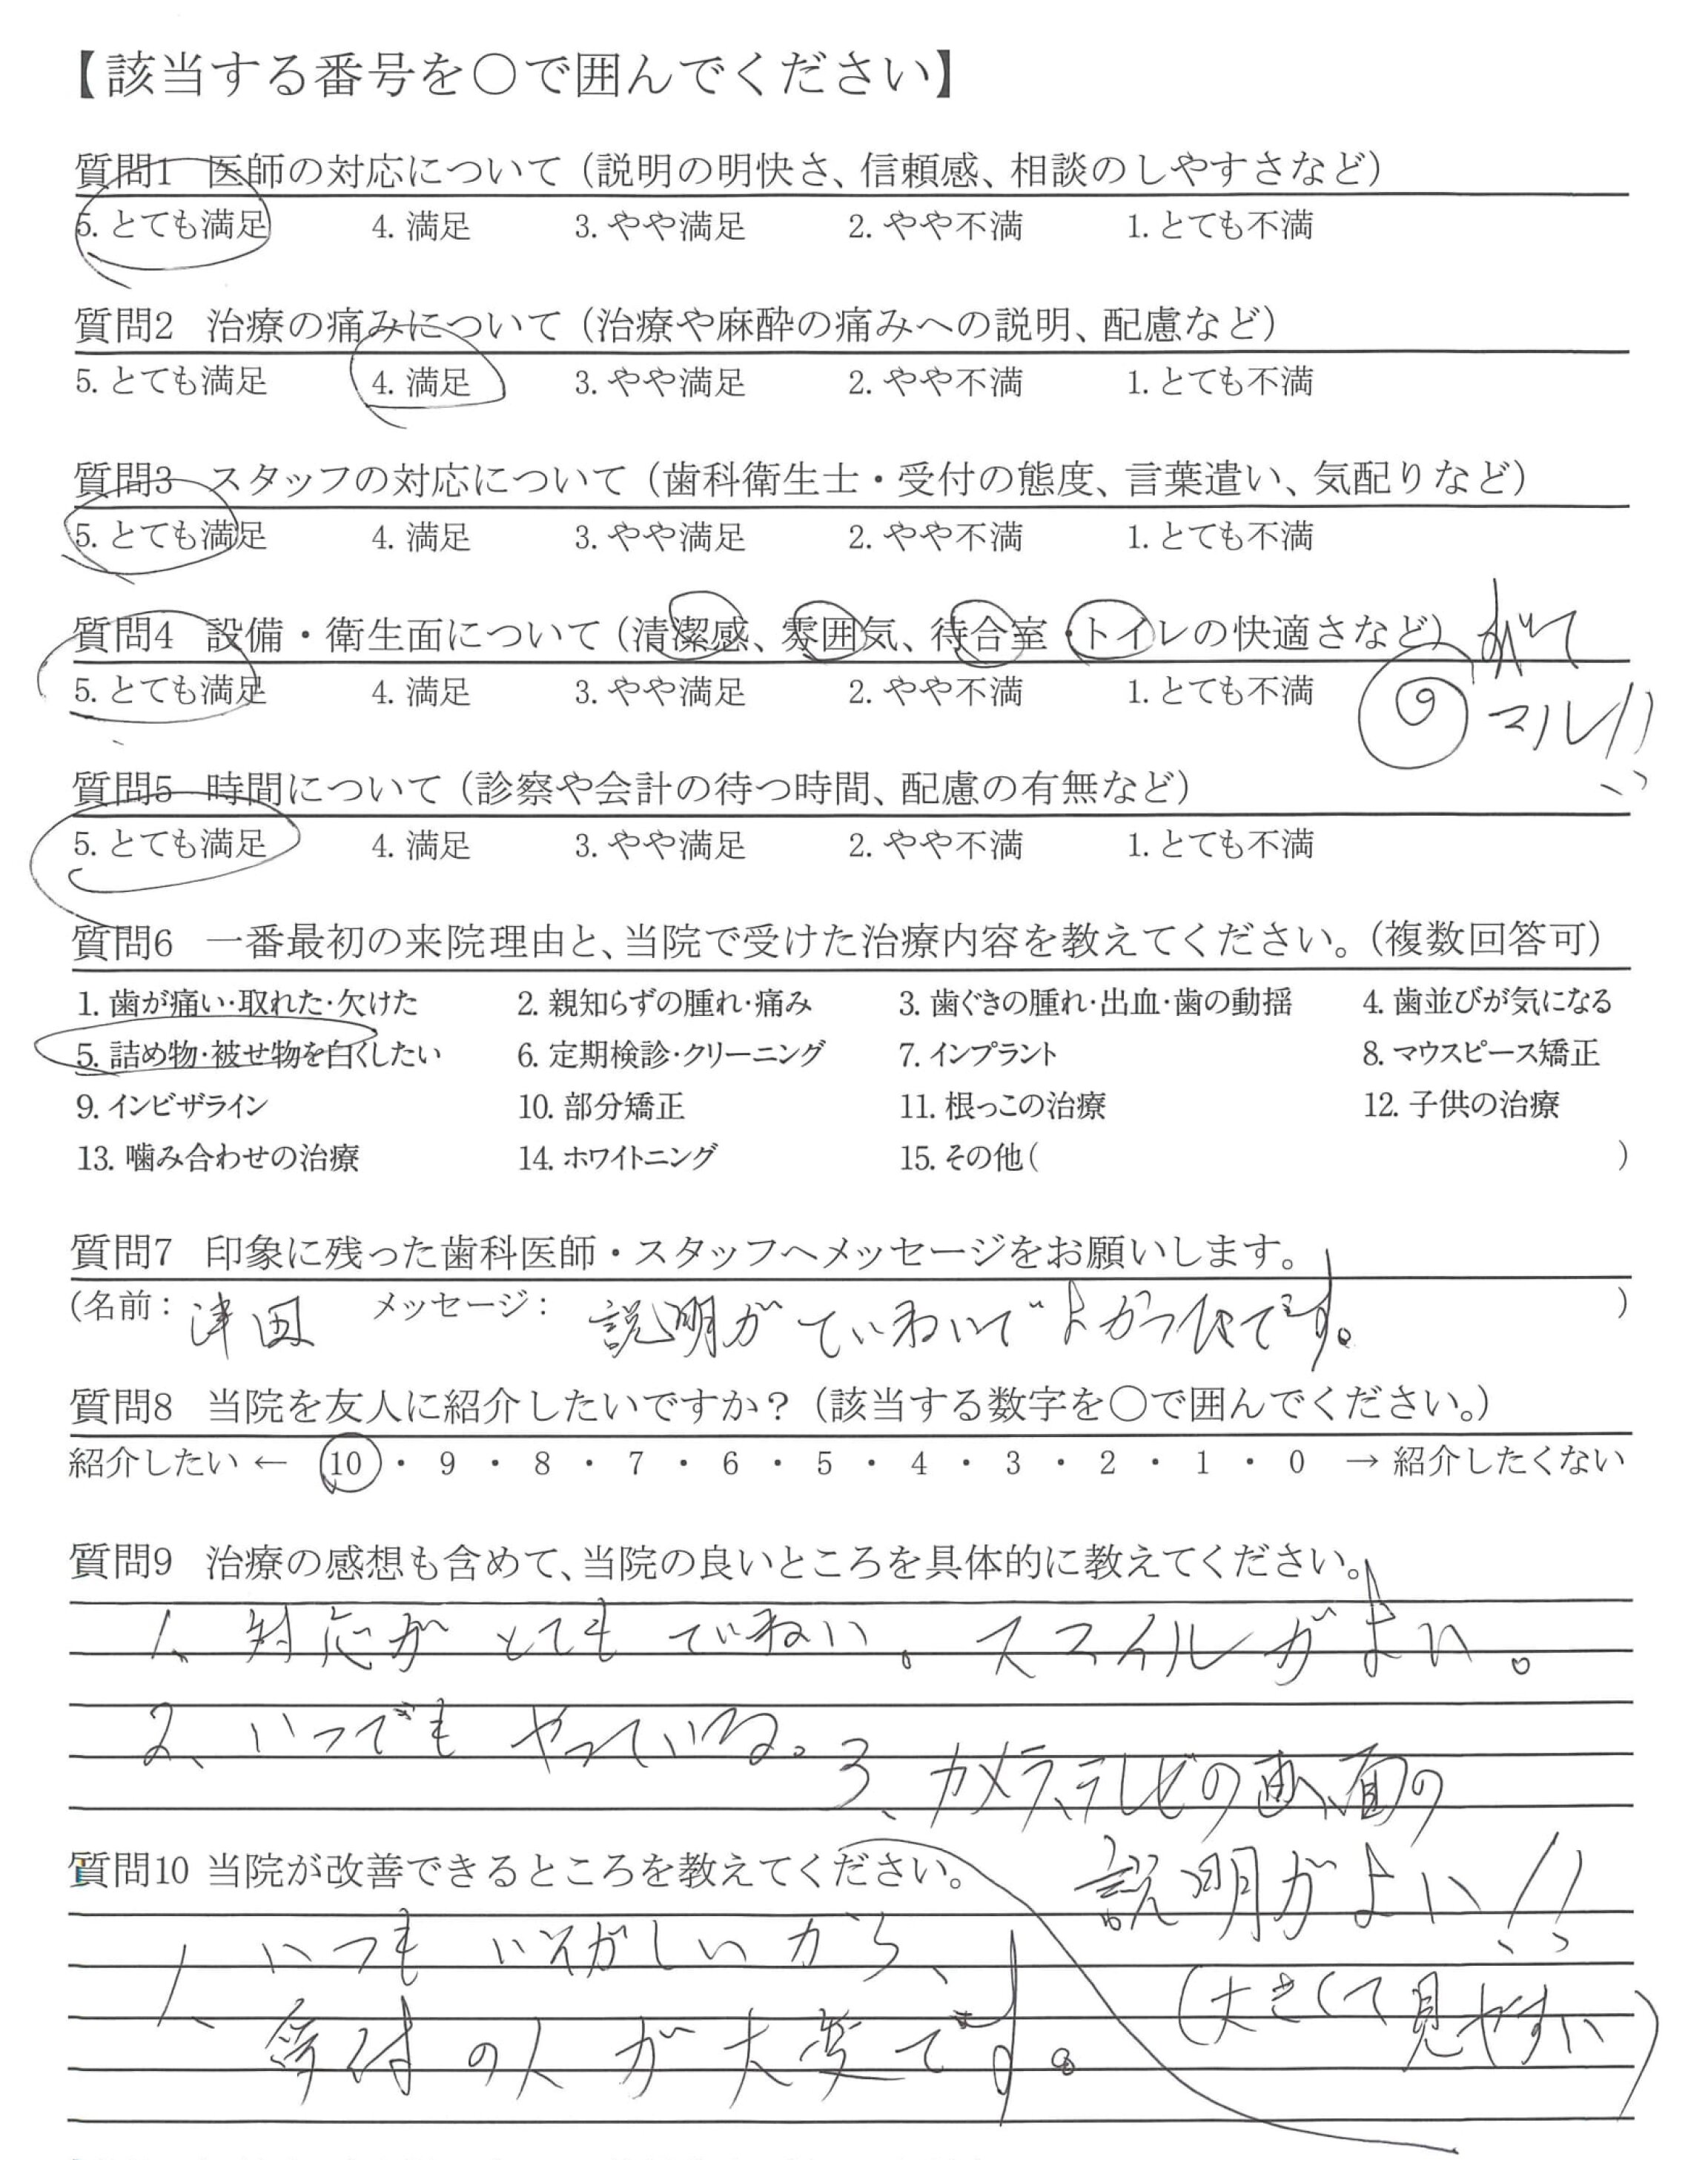 【該当する番号を○で囲んでください】
質問1 医師の対応について（説明の明快さ、信頼感、相談のしやすさなど）
5. とても満足 4. 満足 3. やや満足 2. やや不満 1. とても不満
質問2 治療の痛みについて（治療や麻酔の痛みへの説明、配慮など）
5. とても満足 4. 満足 3. やや満足 2. やや不満 1. とても不満
質問3 スタッフの対応について（歯科衛生士・受付の態度、言葉遣い、気配りなど）
5. とても満足 4. 満足 3. やや満足 2. やや不満 1. とても不満
質問4 設備・衛生面について（清潔感、雰囲気、待合室・トイレの快適さなど）
5. とても満足 4. 満足 3. やや満足 2. やや不満 1. とても不満
マル!!
質問5 時間について（診察や会計の待つ時間、配慮の有無など）
5. とても満足 4. 満足 3. やや満足 2. やや不満 1. とても不満
質問6 一番最初の来院理由と、当院で受けた治療内容を教えてください。（複数回答可）
1. 歯が痛い・取れた・欠けた 2. 親知らずの腫れ・痛み 3. 歯ぐきの腫れ・出血・歯の動揺 4. 歯並びが気になる
5. 詰め物・被せ物を白くしたい 6. 定期検診・クリーニング 7. インプラント 8. マウスピース矯正
9. インビザライン 10. 部分矯正 11. 根っこの治療 12. 子供の治療
13. 噛み合わせの治療 14. ホワイトニング 15. その他( )
質問7 印象に残った歯科医師・スタッフへメッセージをお願いします。
(名前： 津田 メッセージ： 説明がていねいでよかったです。 )
質問8 当院を友人に紹介したいですか？（該当する数字を○で囲んでください。）
紹介したい ← 10 ・ 9 ・ 8 ・ 7 ・ 6 ・ 5 ・ 4 ・ 3 ・ 2 ・ 1 ・ 0 → 紹介したくない
質問9 治療の感想も含めて、当院の良いところを具体的に教えてください。
1、対応がとてもていねい。スマイルがよい。
2、いつでもやっている。3、カメラ、テレビの画面の
説明がよい!!
(大きくて見やすい)
質問10 当院が改善できるところを教えてください。
1、いつもいそがしいから、
受付の人が大変です。